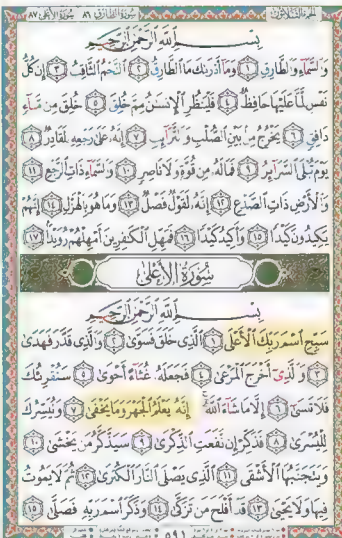 الجزء الثلاثون سورة الطارق ٨٦ سورة الأعلى ٨٧
بِسْمِ اللَّهِ الرَّحْمَٰنِ الرَّحِيمِ
وَالسَّمَاءِ وَالطَّارِقِ ١ وَمَا أَدْرَىٰكَ مَا الطَّارِقُ ٢ النَّجْمُ الثَّاقِبُ ٣ إِن كُلُّ
نَفْسٍ لَّمَّا عَلَيْهَا حَافِظٌ ٤ فَلْيَنظُرِ الْإِنسَٰنُ مِمَّ خُلِقَ ٥ خُلِقَ مِن مَّاءٍ
دَافِقٍ ٦ يَخْرُجُ مِن بَيْنِ الصُّلْبِ وَالتَّرَائِبِ ٧ إِنَّهُ عَلَىٰ رَجْعِهِ لَقَادِرٌ ٨
يَوْمَ تُبْلَى السَّرَائِرُ ٩ فَمَا لَهُ مِن قُوَّةٍ وَلَا نَاصِرٍ ١٠ وَالسَّمَاءِ ذَاتِ الرَّجْعِ ١١
وَالْأَرْضِ ذَاتِ الصَّدْعِ ١٢ إِنَّهُ لَقَوْلٌ فَصْلٌ ١٣ وَمَا هُوَ بِالْهَزْلِ ١٤ إِنَّهُمْ
يَكِيدُونَ كَيْدًا ١٥ وَأَكِيدُ كَيْدًا ١٦ فَمَهِّلِ الْكَٰفِرِينَ أَمْهِلْهُمْ رُوَيْدًا ١٧
سُورَةُ الْأَعْلَىٰ
بِسْمِ اللَّهِ الرَّحْمَٰنِ الرَّحِيمِ
سَبِّحِ اسْمَ رَبِّكَ الْأَعْلَى ١ الَّذِي خَلَقَ فَسَوَّىٰ ٢ وَالَّذِي قَدَّرَ فَهَدَىٰ
٣ وَالَّذِي أَخْرَجَ الْمَرْعَىٰ ٤ فَجَعَلَهُ غُثَاءً أَحْوَىٰ ٥ سَنُقْرِئُكَ
فَلَا تَنسَىٰ ٦ إِلَّا مَا شَاءَ اللَّهُ إِنَّهُ يَعْلَمُ الْجَهْرَ وَمَا يَخْفَىٰ ٧ وَنُيَسِّرُكَ
لِلْيُسْرَىٰ ٨ فَذَكِّرْ إِن نَّفَعَتِ الذِّكْرَىٰ ٩ سَيَذَّكَّرُ مَن يَخْشَىٰ ١٠
وَيَتَجَنَّبُهَا الْأَشْقَى ١١ الَّذِي يَصْلَى النَّارَ الْكُبْرَىٰ ١٢ ثُمَّ لَا يَمُوتُ
فِيهَا وَلَا يَحْيَىٰ ١٣ قَدْ أَفْلَحَ مَن تَزَكَّىٰ ١٤ وَذَكَرَ اسْمَ رَبِّهِ فَصَلَّىٰ ١٥
٥٩١